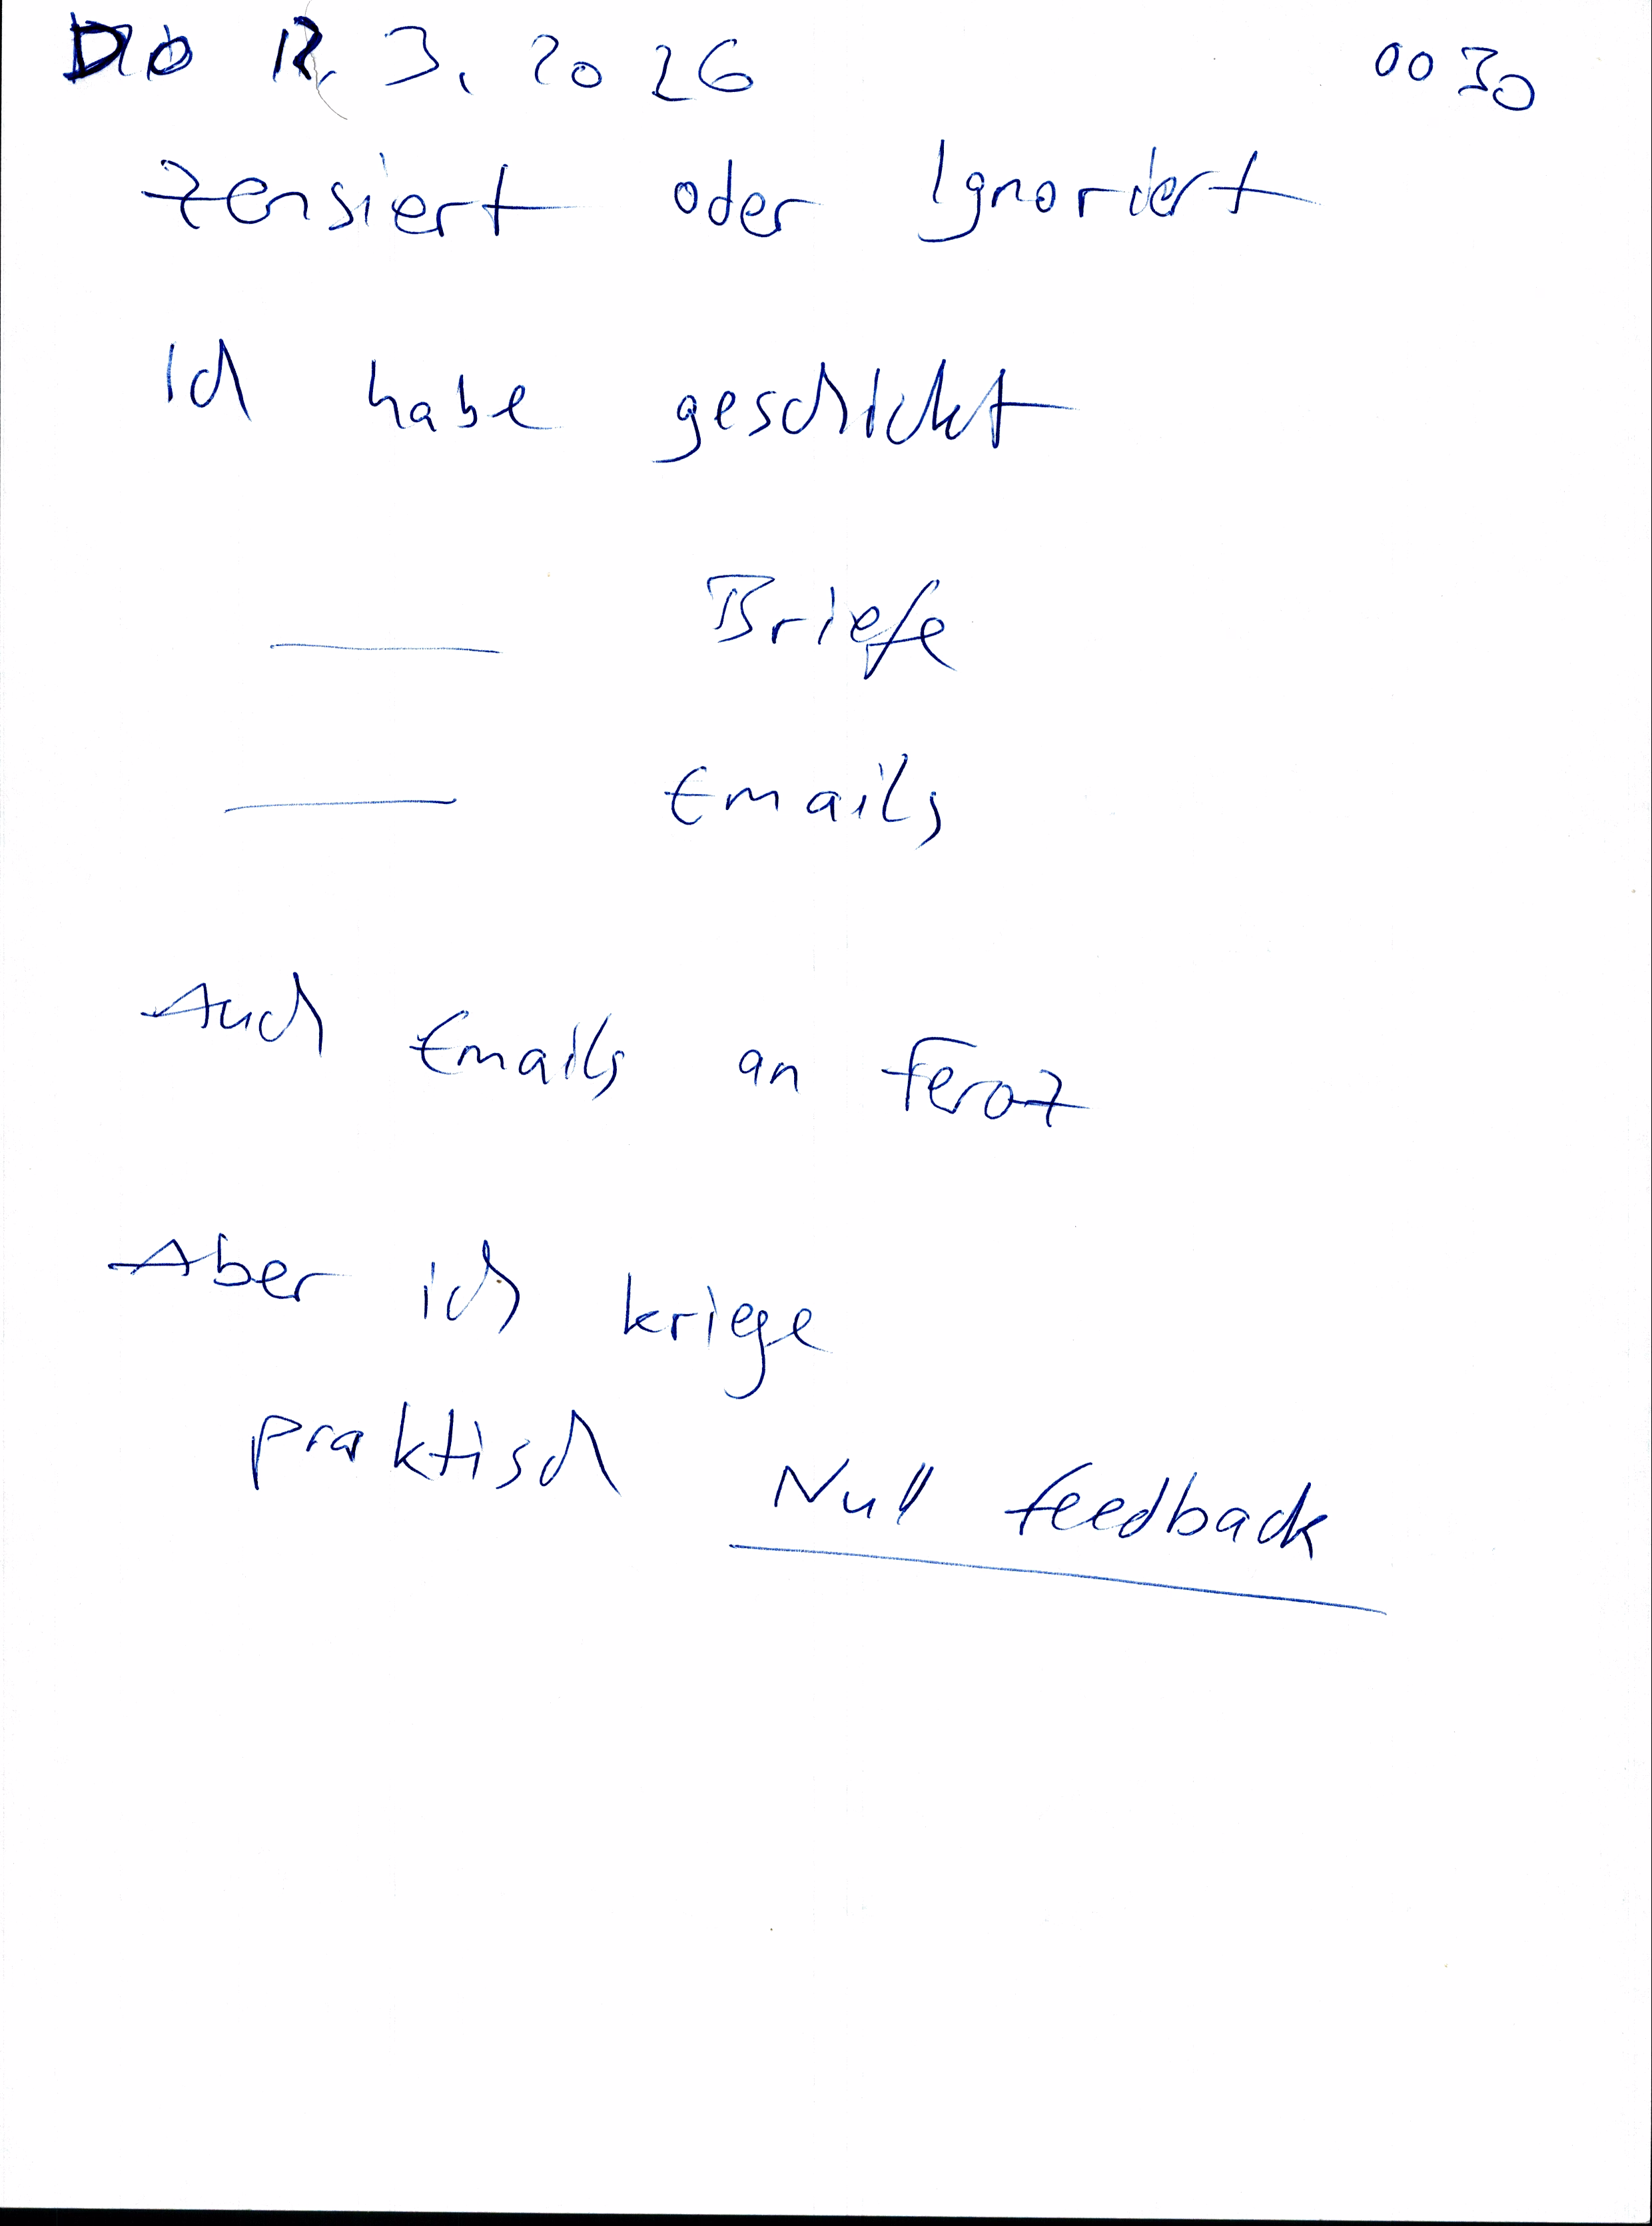 Do 12. 3. 2026 0030
Zensiert oder Ignoriert
Ich habe geschickt
Briefe
Emails
Auch Emails an Feroz
Aber ich kriege
praktisch Null feedback